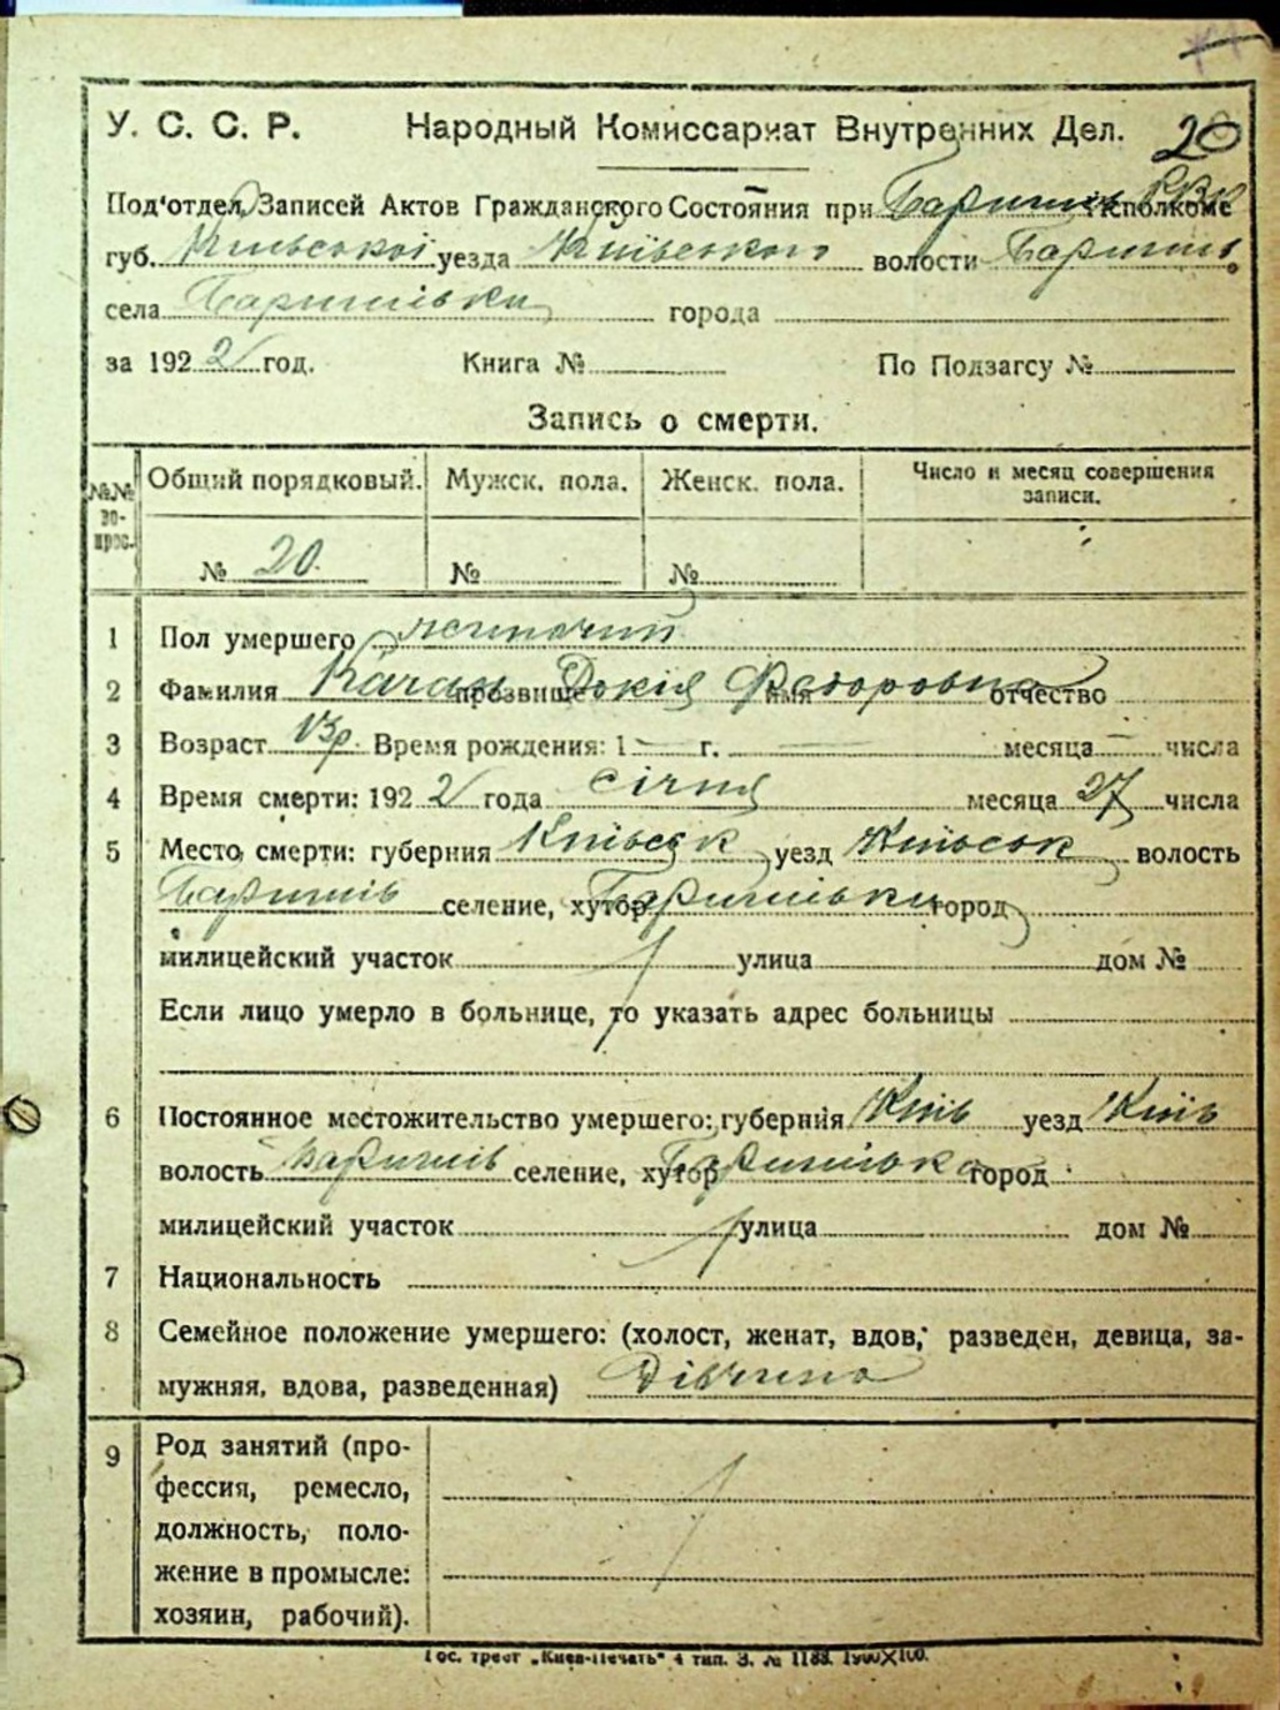 У. С. С. Р. Народный Комиссариат Внутренних Дел. 20
Под'отдел, Записей Актов Гражданского Состояния при Баришів РВК Исполкоме
губ. Київської уезда Київського волости Баришів.
села Баришівки города
за 1922 год. Книга № По Подзагсу №
Запись о смерти.
№№ во- прос. Общий порядковый. Мужск. пола. Женск. пола. Число и месяц совершения записи.
№ 20. № №
1 Пол умершего жіночий
2 Фамилия Качан прозвище Докія имя Федоровна отчество
3 Возраст Время рождения: 1 — г. — месяца — числа
4 Время смерти: 1922 года січня месяца 27 числа
5 Место смерти: губерния Київськ уезд Київськ волость
Баришів селение, хутор Баришівки город
милицейский участок улица дом №
Если лицо умерло в больнице, то указать адрес больницы
6 Постоянное местожительство умершего: губерния Київ уезд Київ
волость Баришів селение, хутор Баришівка город
милицейский участок улица дом №
7 Национальность
8 Семейное положение умершего: (холост, женат, вдов, разведен, девица, за-
мужняя, вдова, разведенная) Дівчина
9 Род занятий (про-
фессия, ремесло,
должность, поло-
жение в промысле:
хозяин, рабочий).
Гос. трест „Киев-Печать" 4 тип. З. № 1188. 1900×100.